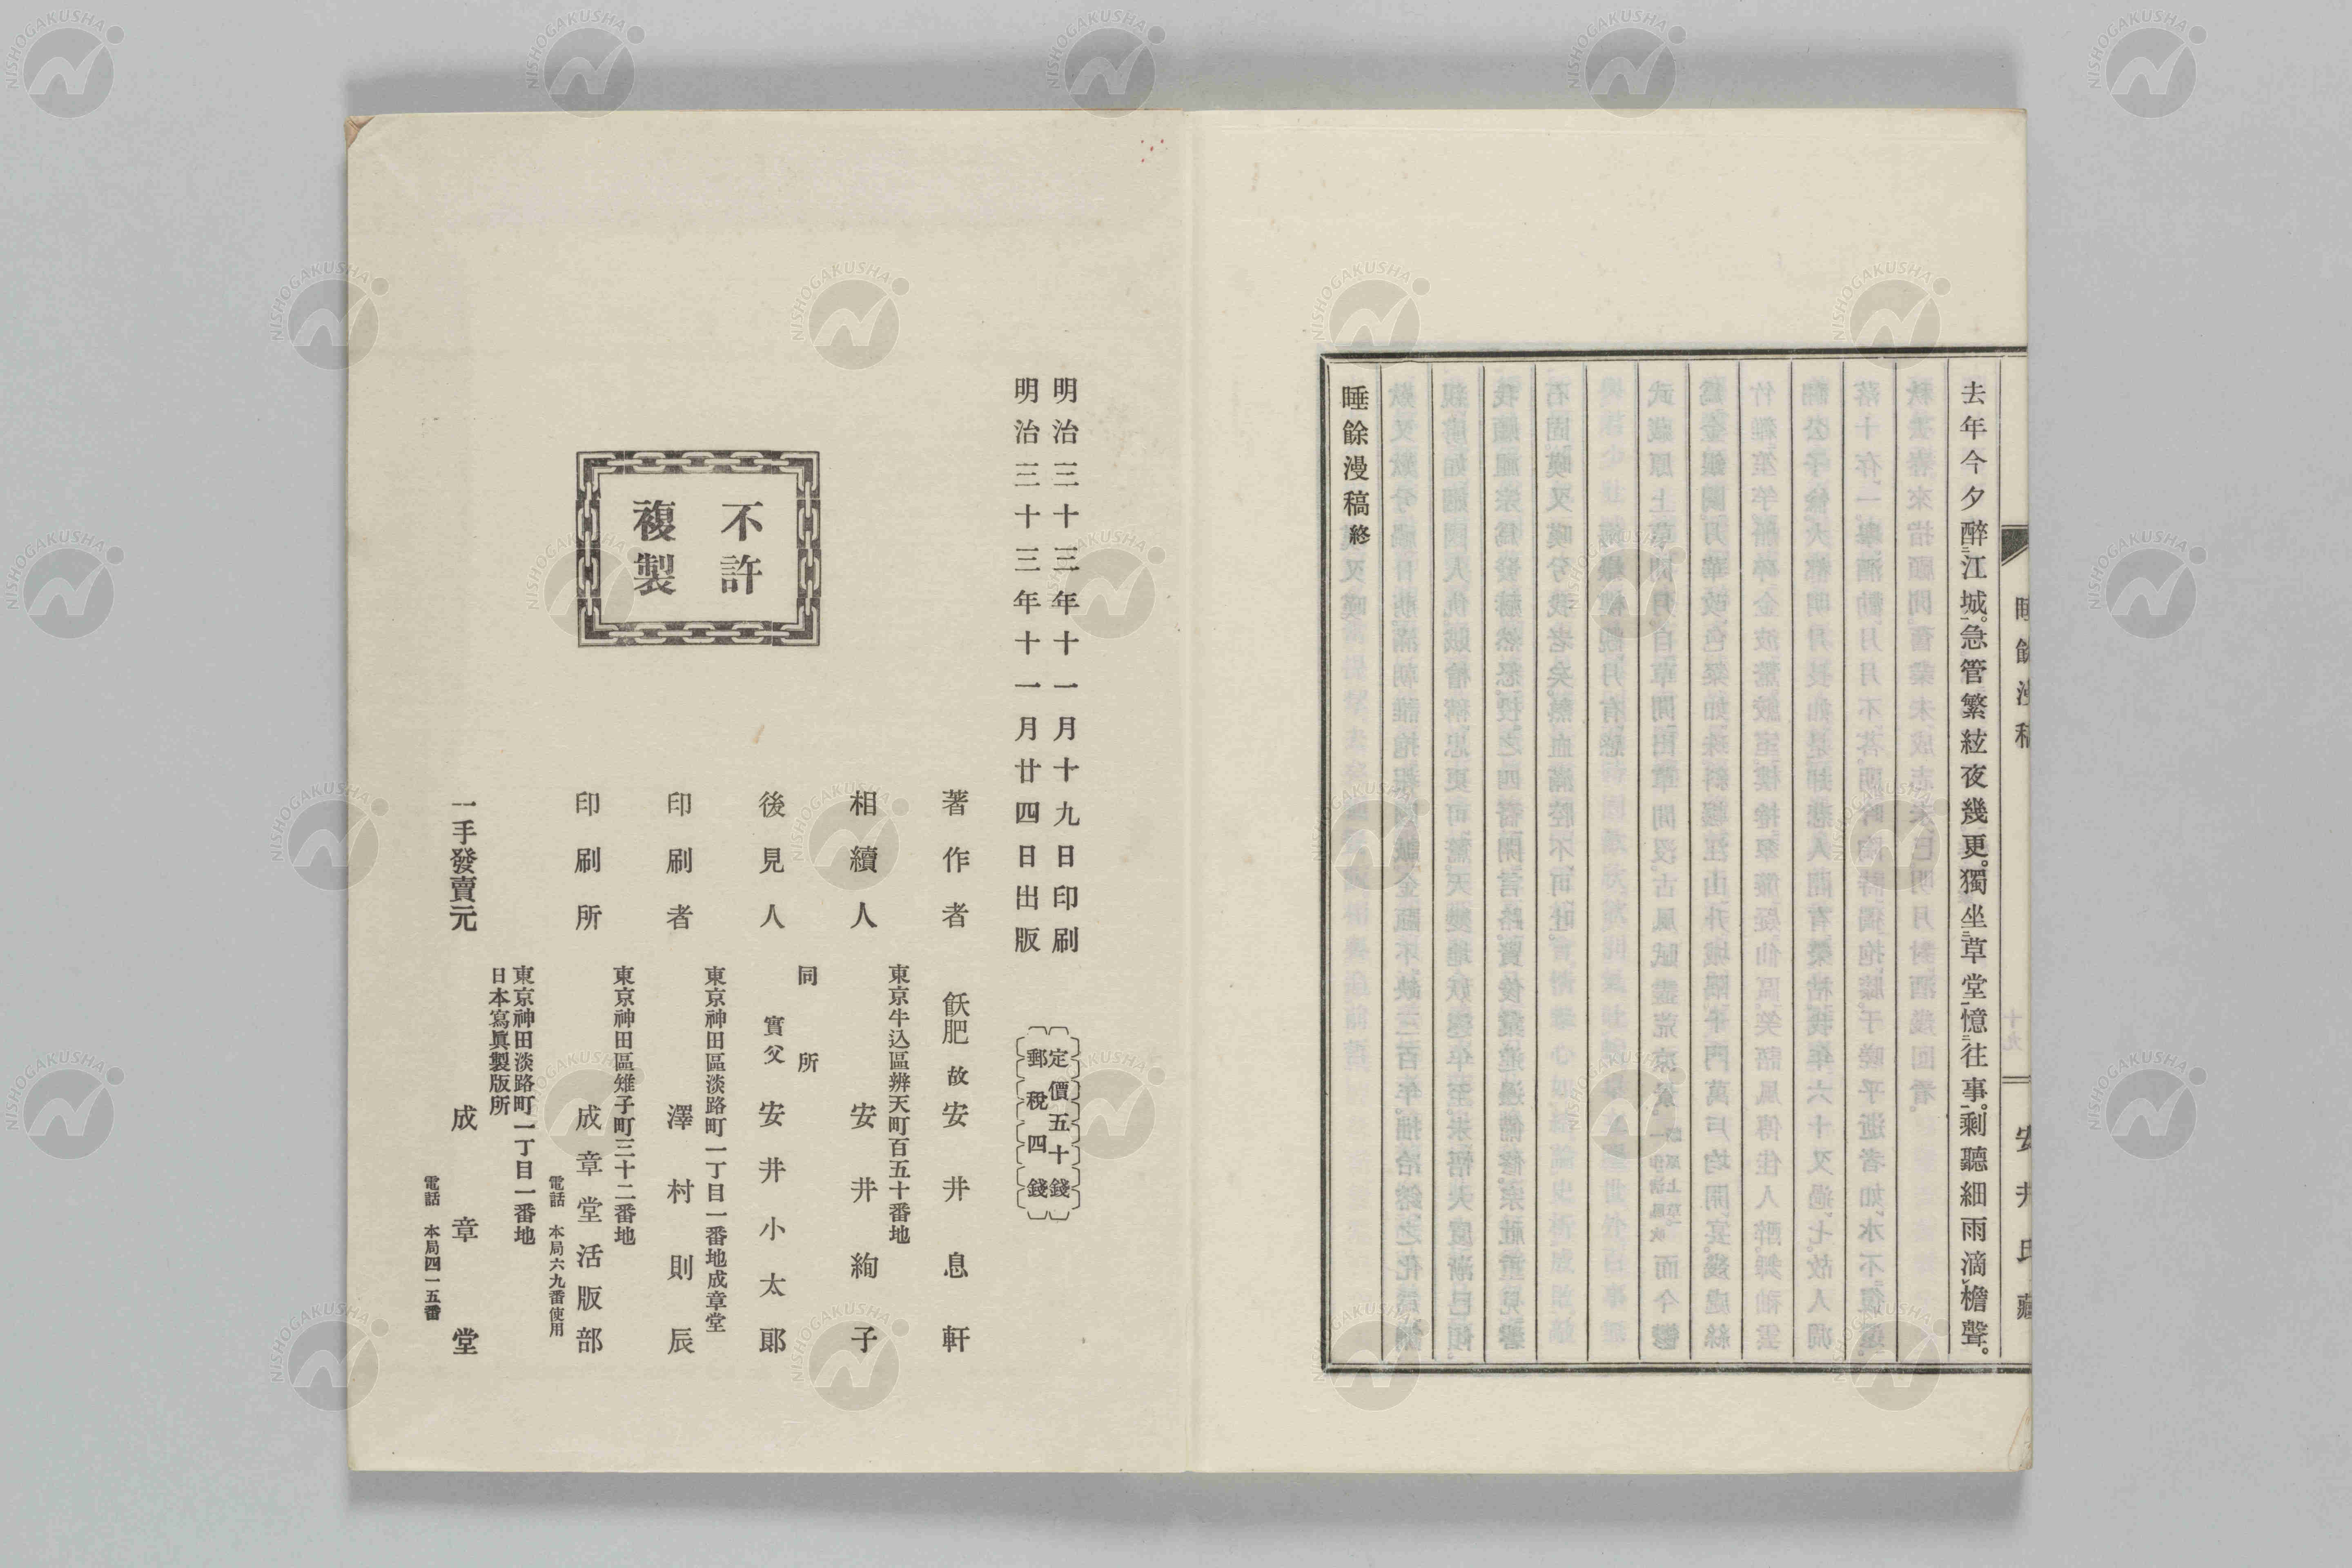 睡餘漫稿
安井氏藏
去年今夕醉江城。急管繁絃夜幾更。獨坐草堂憶往事。剩聽細雨滴檐聲。
睡餘漫稿終
明治三十三年十一月十九日印刷
明治三十三年十一月廿四日出版
定價五十錢
郵稅四錢
不許
複製
著作者 飫肥 故 安井息軒
東京牛込區辨天町百五十番地
相續人 安井絢子
同所
後見人 實父 安井小太郎
東京神田區淡路町一丁目一番地成章堂
印刷者 澤村則辰
東京神田區雉子町三十二番地
印刷所 成章堂活版部
電話 本局六九番使用
東京神田淡路町一丁目一番地
日本寫眞製版所
一手發賣元 成章堂
電話 本局四一五番
NISHOGAKUSHA